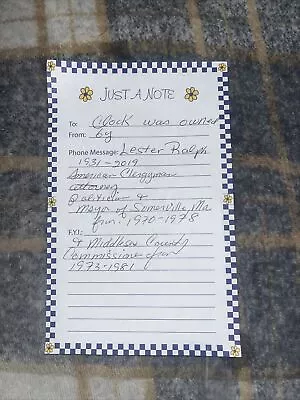 JUST A NOTE
To: Clock was owned
From: by
Phone Message: Lester Ralph
1931-2019
American Clergyman
attorney
politician &
Mayor of Somerville, Ma
from: 1970-1978
F.Y.I.:
& Middlesex County
Commissioner from
1973-1981